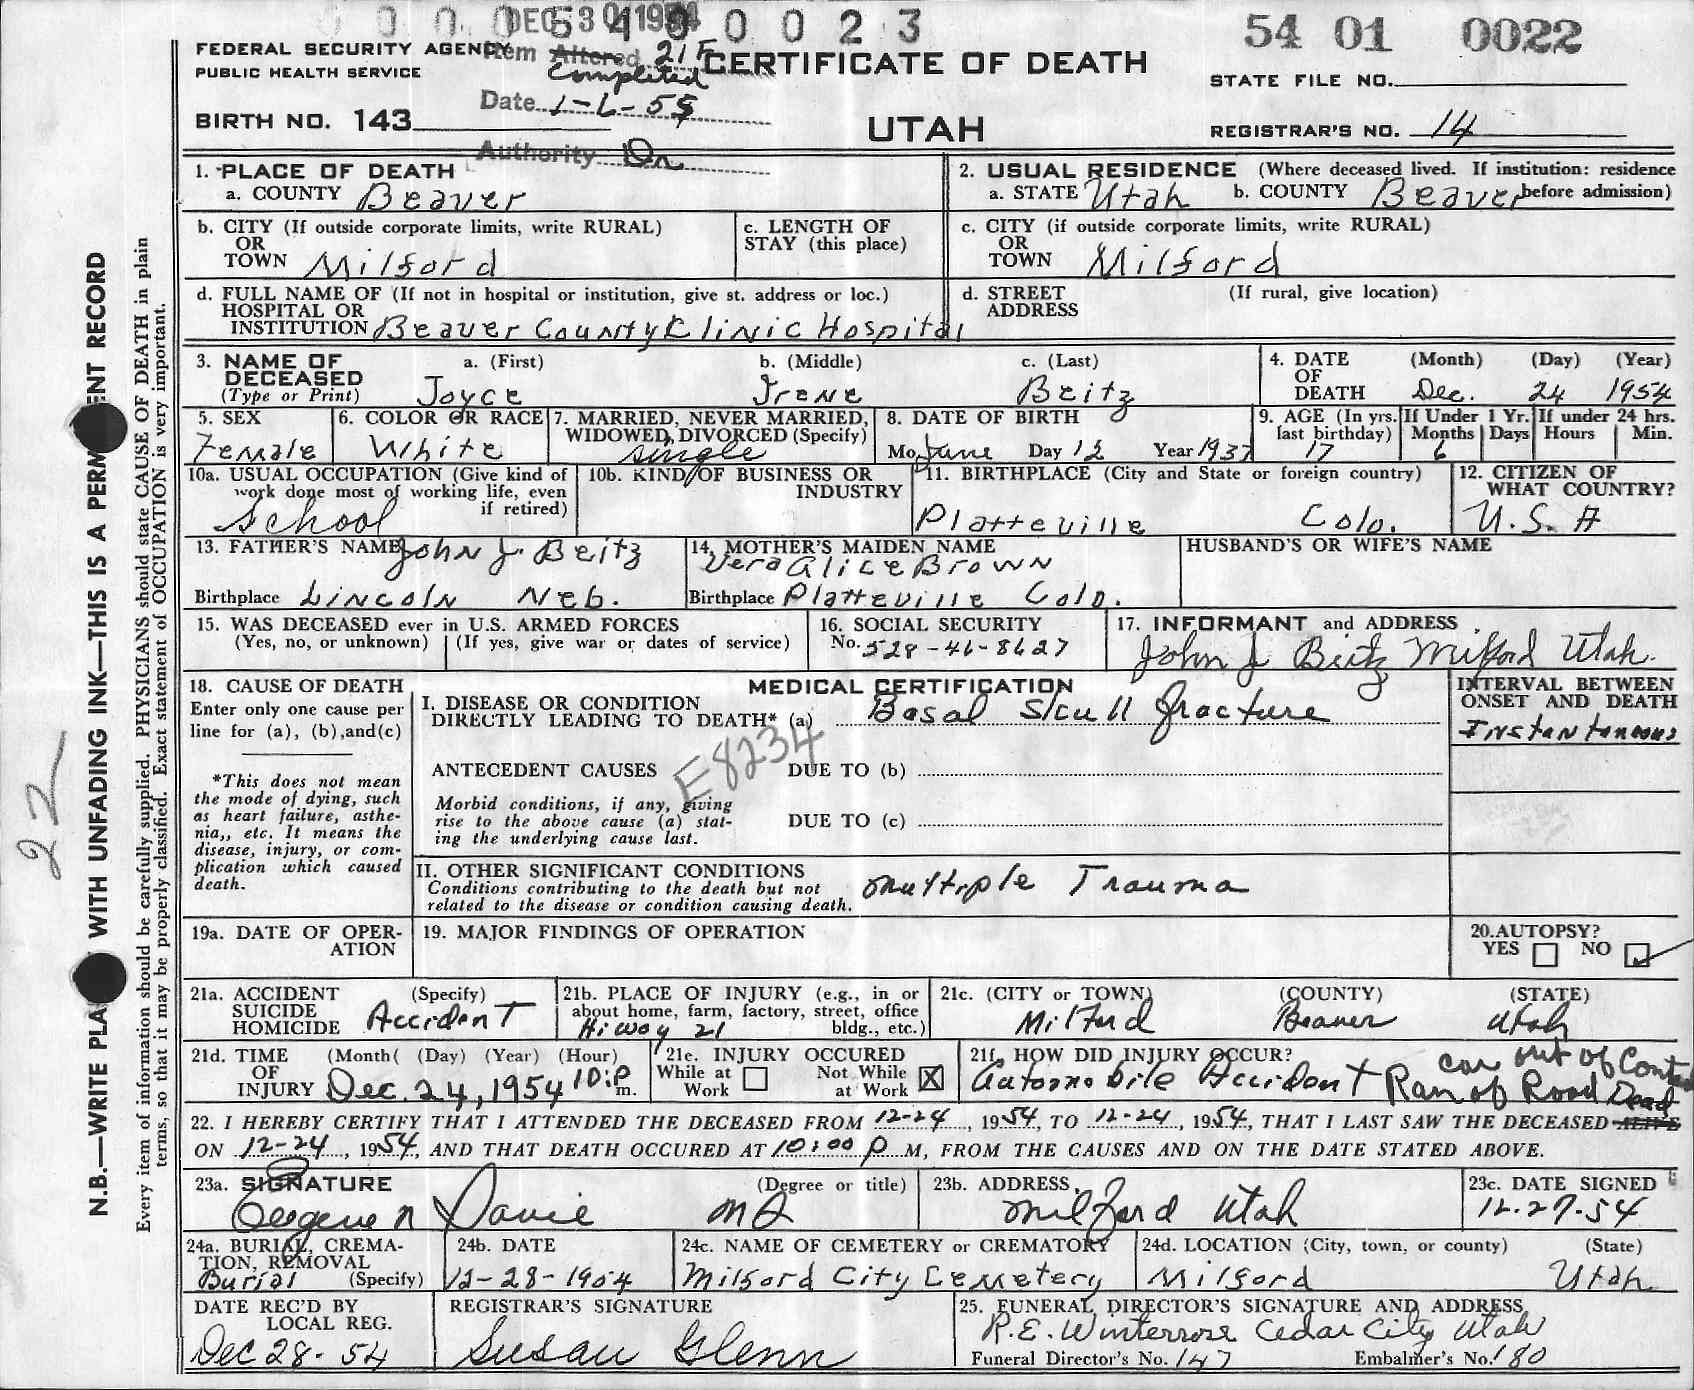 DEC 30 1954
0 0 0 0 5 4 0 0 0 2 3
54 01 0022
FEDERAL SECURITY AGENCY
PUBLIC HEALTH SERVICE
Item Altered 21F
Completed
Date 1-6-55
Authority Dr
CERTIFICATE OF DEATH
UTAH
STATE FILE NO.
BIRTH NO. 143
REGISTRAR'S NO. 14
1. PLACE OF DEATH
a. COUNTY Beaver
2. USUAL RESIDENCE (Where deceased lived. If institution: residence before admission)
a. STATE Utah b. COUNTY Beaver
b. CITY (If outside corporate limits, write RURAL)
OR
TOWN Milford
c. LENGTH OF
STAY (this place)
c. CITY (if outside corporate limits, write RURAL)
OR
TOWN Milford
d. FULL NAME OF (If not in hospital or institution, give st. address or loc.)
HOSPITAL OR
INSTITUTION Beaver County Clinic Hospital
d. STREET (If rural, give location)
ADDRESS
3. NAME OF DECEASED
(Type or Print)
a. (First) b. (Middle) c. (Last)
Joyce Irene Beitz
4. DATE OF DEATH (Month) (Day) (Year)
Dec. 24 1954
5. SEX
Female
6. COLOR OR RACE
White
7. MARRIED, NEVER MARRIED,
WIDOWED, DIVORCED (Specify)
Single
8. DATE OF BIRTH
Mo. June Day 12 Year 1937
9. AGE (In yrs. last birthday)
17
If Under 1 Yr. Months Days
6
If under 24 hrs. Hours Min.
10a. USUAL OCCUPATION (Give kind of
work done most of working life, even
if retired)
School
10b. KIND OF BUSINESS OR
INDUSTRY
11. BIRTHPLACE (City and State or foreign country)
Platteville Colo.
12. CITIZEN OF
WHAT COUNTRY?
U.S.A
13. FATHER'S NAME John J. Beitz
Birthplace Lincoln Neb.
14. MOTHER'S MAIDEN NAME
Vera Alice Brown
Birthplace Platteville Colo.
HUSBAND'S OR WIFE'S NAME
15. WAS DECEASED ever in U.S. ARMED FORCES
(Yes, no, or unknown) (If yes, give war or dates of service)
16. SOCIAL SECURITY
No. 528-46-8627
17. INFORMANT and ADDRESS
John J Beitz Milford Utah.
18. CAUSE OF DEATH
Enter only one cause per
line for (a), (b), and (c)
*This does not mean
the mode of dying, such
as heart failure, asthe-
nia,, etc. It means the
disease, injury, or com-
plication which caused
death.
MEDICAL CERTIFICATION
I. DISEASE OR CONDITION
DIRECTLY LEADING TO DEATH* (a) Basal Skull fracture
INTERVAL BETWEEN
ONSET AND DEATH
Instantaneous
E8234
ANTECEDENT CAUSES DUE TO (b)
Morbid conditions, if any, giving
rise to the above cause (a) stat-
ing the underlying cause last.
DUE TO (c)
II. OTHER SIGNIFICANT CONDITIONS
Conditions contributing to the death but not
related to the disease or condition causing death.
Multiple Trauma
19a. DATE OF OPER-
ATION
19. MAJOR FINDINGS OF OPERATION
20. AUTOPSY?
YES NO
21a. ACCIDENT (Specify)
SUICIDE
HOMICIDE Accident
21b. PLACE OF INJURY (e.g., in or
about home, farm, factory, street, office
bldg., etc.)
Hiway 21
21c. (CITY or TOWN) (COUNTY) (STATE)
Milford Beaver Utah
21d. TIME (Month( (Day) (Year) (Hour)
OF
INJURY Dec. 24, 1954 10:P m.
21e. INJURY OCCURED
While at Work Not While at Work
21f. HOW DID INJURY OCCUR?
Automobile Accident car out of Control
Ran of Road
22. I HEREBY CERTIFY THAT I ATTENDED THE DECEASED FROM 12-24, 1954, TO 12-24, 1954, THAT I LAST SAW THE DECEASED ALIVE Dead
ON 12-24, 1954, AND THAT DEATH OCCURED AT 10:00 P M, FROM THE CAUSES AND ON THE DATE STATED ABOVE.
23a. SIGNATURE (Degree or title)
Eugene N Davie MD
23b. ADDRESS
Milford Utah
23c. DATE SIGNED
12-27-54
24a. BURIAL, CREMA-
TION, REMOVAL
Burial (Specify)
24b. DATE
12-28-1954
24c. NAME OF CEMETERY or CREMATORY
Milford City Cemetery
24d. LOCATION (City, town, or county) (State)
Milford Utah
DATE REC'D BY
LOCAL REG.
Dec 28-54
REGISTRAR'S SIGNATURE
Susan Glenn
25. FUNERAL DIRECTOR'S SIGNATURE AND ADDRESS
R.E. Winterrose Cedar City Utah
Funeral Director's No. 147 Embalmer's No. 180
N.B.—WRITE PLA WITH UNFADING INK—THIS IS A PERM ENT RECORD
Every item of information should be carefully supplied. PHYSICIANS should state CAUSE OF DEATH in plain
terms, so that it may be properly classified. Exact statement of OCCUPATION is very important.
22